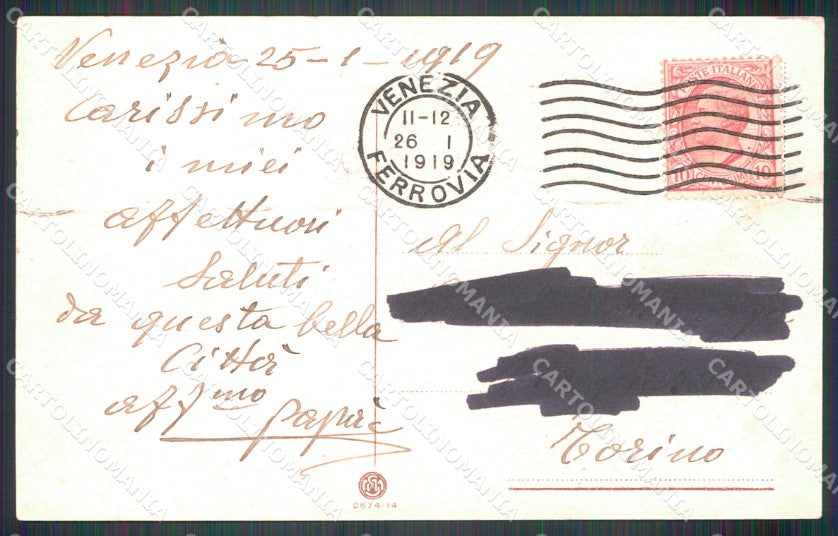 Venezia 25-1-1919
Carissimo
i miei
affettuosi
saluti
da questa bella
Città
aff.mo
papà
VENEZIA
11-12
26 1
1919
FERROVIA
POSTE ITALIANE
10 10
Al Signor
Torino
2674-14
CARTOLINOMANIA